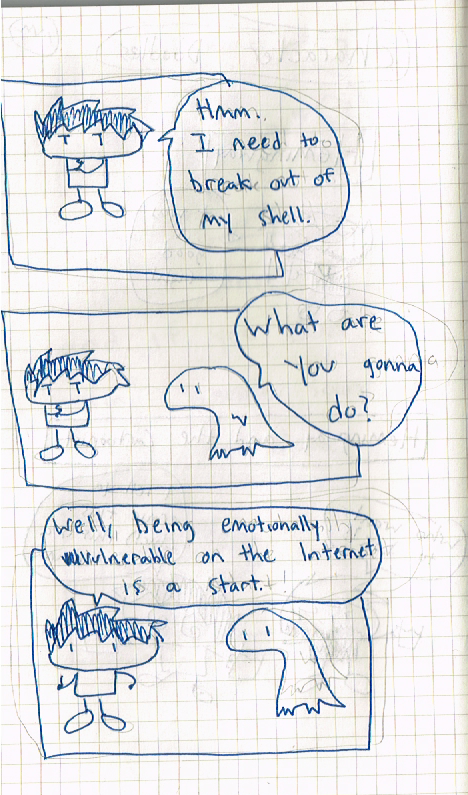 Hmm.
I need to
break out of
my shell.
What are
you gonna
do?
Well, being emotionally
vulnerable on the Internet
is a start.